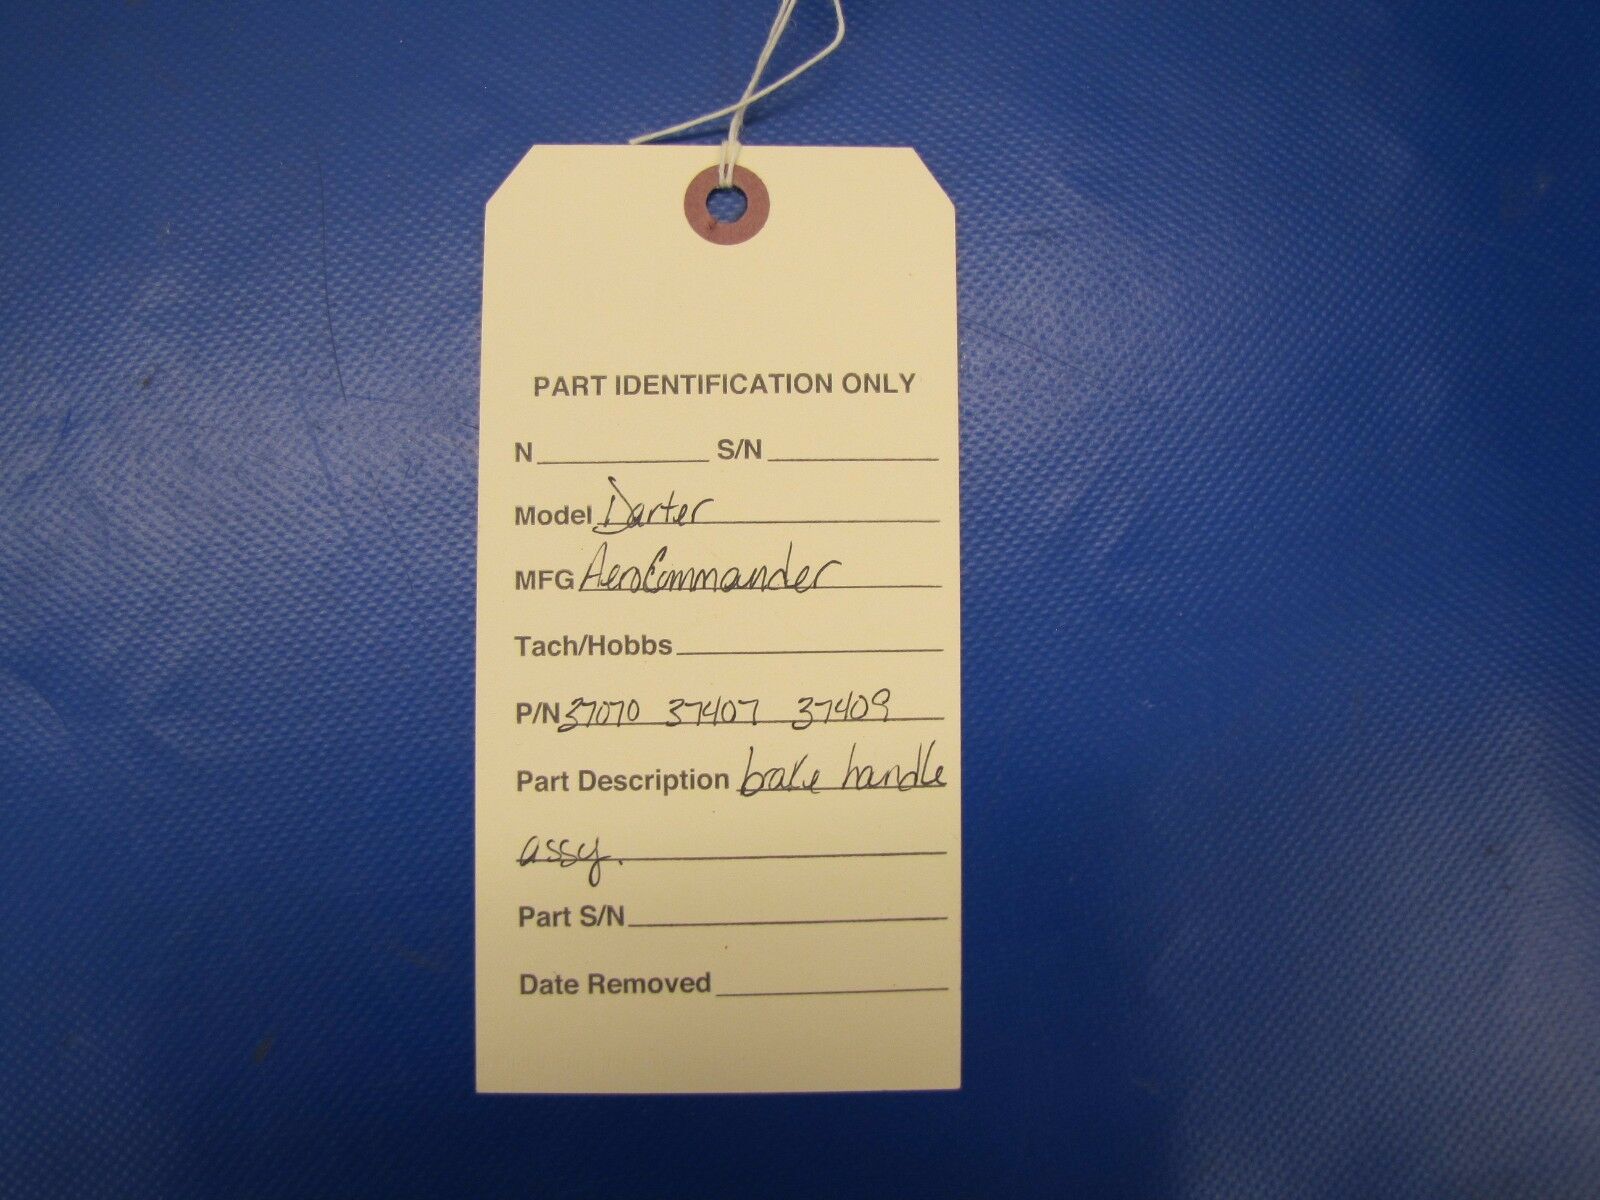 PART IDENTIFICATION ONLY
N S/N
Model Darter
MFG AeroCommander
Tach/Hobbs
P/N 37070 37407 37409
Part Description brake handle
assy.
Part S/N
Date Removed